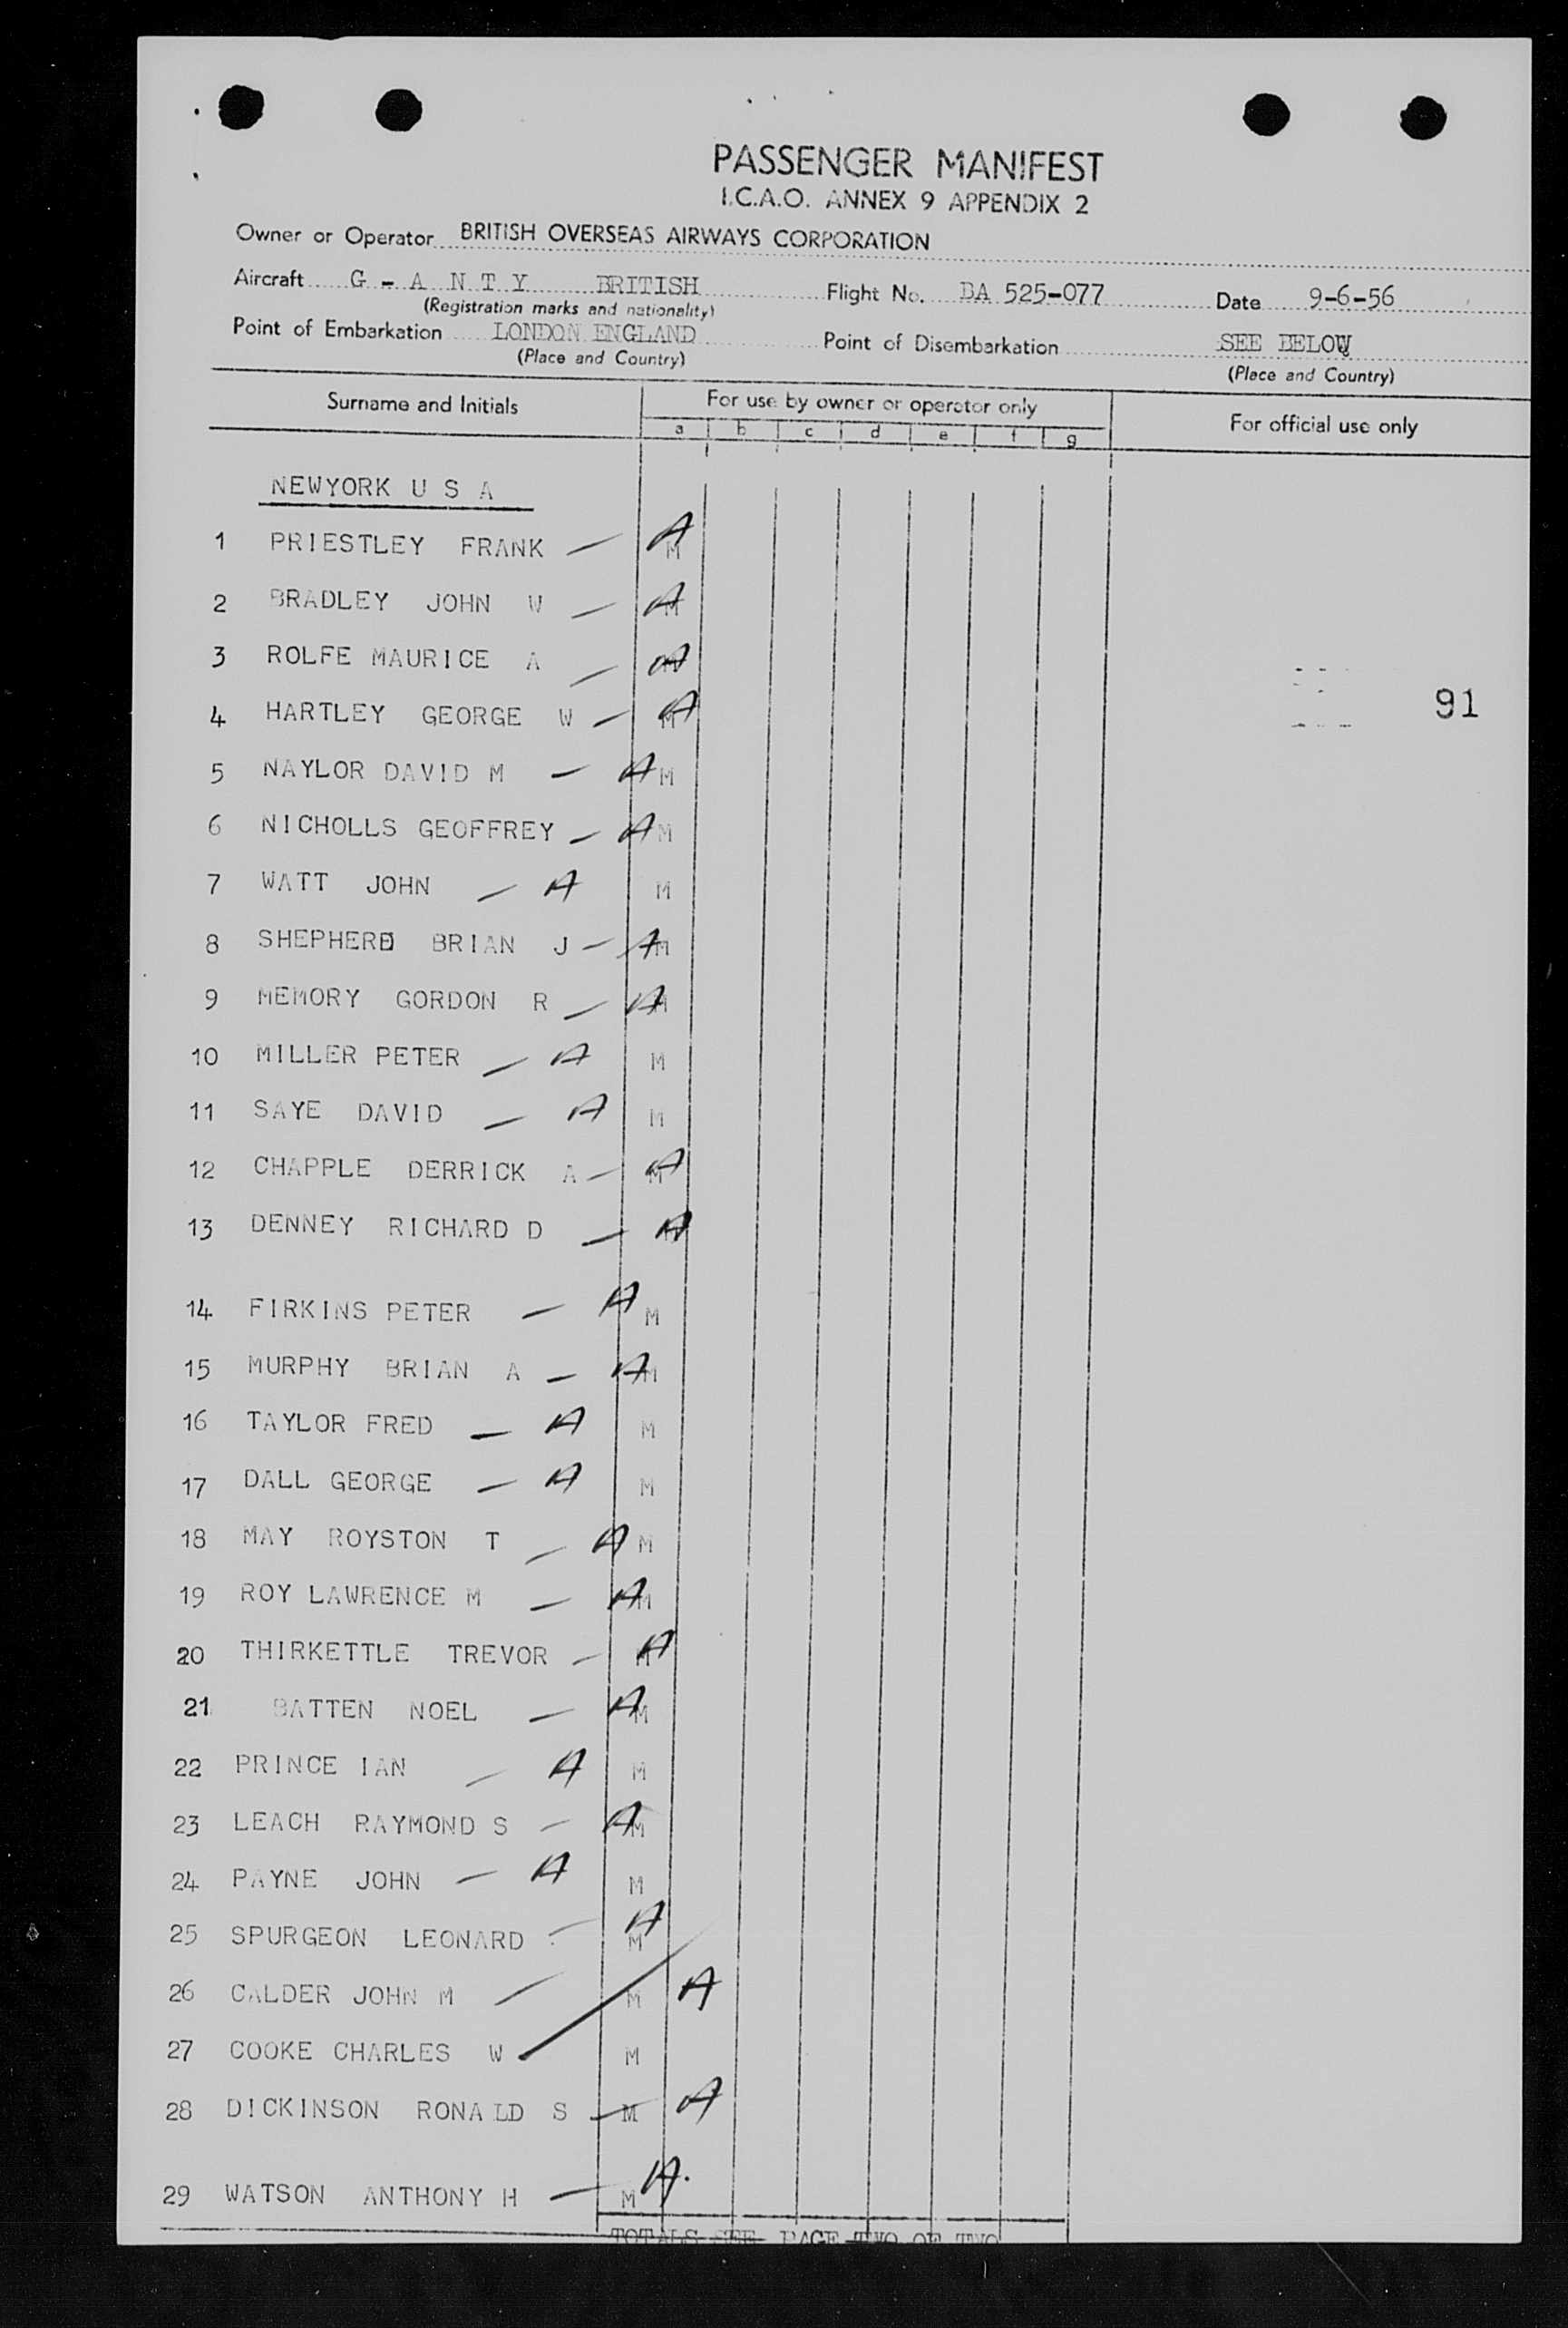 PASSENGER MANIFEST
I.C.A.O. ANNEX 9 APPENDIX 2
Owner or Operator BRITISH OVERSEAS AIRWAYS CORPORATION
Aircraft G - A N T Y BRITISH Flight No. BA 525-077 Date 9-6-56
(Registration marks and nationality)
Point of Embarkation LONDON ENGLAND Point of Disembarkation SEE BELOW
(Place and Country) (Place and Country)
Surname and Initials For use by owner or operator only For official use only
a b c d e f g
NEWYORK U S A
1 PRIESTLEY FRANK — A M
2 BRADLEY JOHN W — A M
3 ROLFE MAURICE A — A M
4 HARTLEY GEORGE W — A M
91
5 NAYLOR DAVID M — A M
6 NICHOLLS GEOFFREY — A M
7 WATT JOHN — A M
8 SHEPHERD BRIAN J — A M
9 MEMORY GORDON R — A M
10 MILLER PETER — A M
11 SAYE DAVID — A M
12 CHAPPLE DERRICK A — A M
13 DENNEY RICHARD D — A M
14 FIRKINS PETER — A M
15 MURPHY BRIAN A — A M
16 TAYLOR FRED — A M
17 DALL GEORGE — A M
18 MAY ROYSTON T — A M
19 ROY LAWRENCE M — A M
20 THIRKETTLE TREVOR — A M
21 BATTEN NOEL — A M
22 PRINCE IAN — A M
23 LEACH RAYMOND S — A M
24 PAYNE JOHN — A M
25 SPURGEON LEONARD — A M
26 CALDER JOHN M — M A
27 COOKE CHARLES W M
28 DICKINSON RONALD S — M A
29 WATSON ANTHONY H — M A.
TOTALS SEE PAGE TWO OF TWO